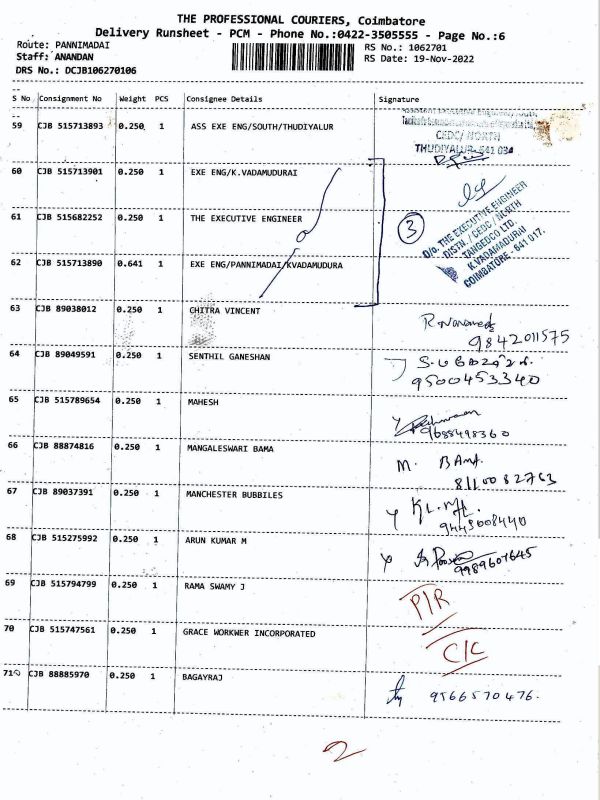 THE PROFESSIONAL COURIERS, Coimbatore
Delivery Runsheet - PCM - Phone No.:0422-3505555 - Page No.:6
Route: PANNIMADAI RS No.: 1062701
Staff: ANANDAN RS Date: 19-Nov-2022
DRS No.: DCJB106270106
S No Consignment No Weight PCS Consignee Details Signature
59 CJB 515713893 0.250 1 ASS EXE ENG/SOUTH/THUDIYALUR
CEDC/ NORTH
THUDIYALUR-641 034
60 CJB 515713901 0.250 1 EXE ENG/K.VADAMUDURAI
61 CJB 515682252 0.250 1 THE EXECUTIVE ENGINEER 3
O/o. THE EXECUTIVE ENGINEER
DISTN./ CEDC / NORTH
TANGEDCO LTD.
K.VADAMADURAI
COIMBATORE - 641 017.
62 CJB 515713890 0.641 1 EXE ENG/PANNIMADAI/KVADAMUDURA
63 CJB 89038012 0.250 1 CHITRA VINCENT
9842011575
64 CJB 89049591 0.250 1 SENTHIL GANESHAN
9500453340
65 CJB 515789654 0.250 1 MAHESH
9688498360
66 CJB 88874816 0.250 1 MANGALESWARI BAMA M.
8110082763
67 CJB 89037391 0.250 1 MANCHESTER BUBBILES
9443008440
68 CJB 515275992 0.250 1 ARUN KUMAR M
9989607645
69 CJB 515794799 0.250 1 RAMA SWAMY J P/R
70 CJB 515747561 0.250 1 GRACE WORKWER INCORPORATED C/C
71 CJB 88885970 0.250 1 BAGAYRAJ 9566570476.
2